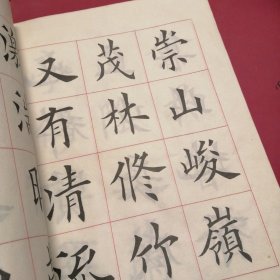 崇山峻嶺
茂林修竹
又有清流